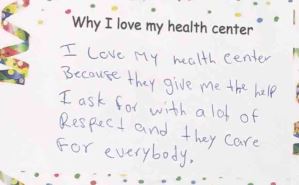 Why I love my health center
I Love My health center
Because they give me the help
I ask for with a lot of
Respect and they care
For everybody.